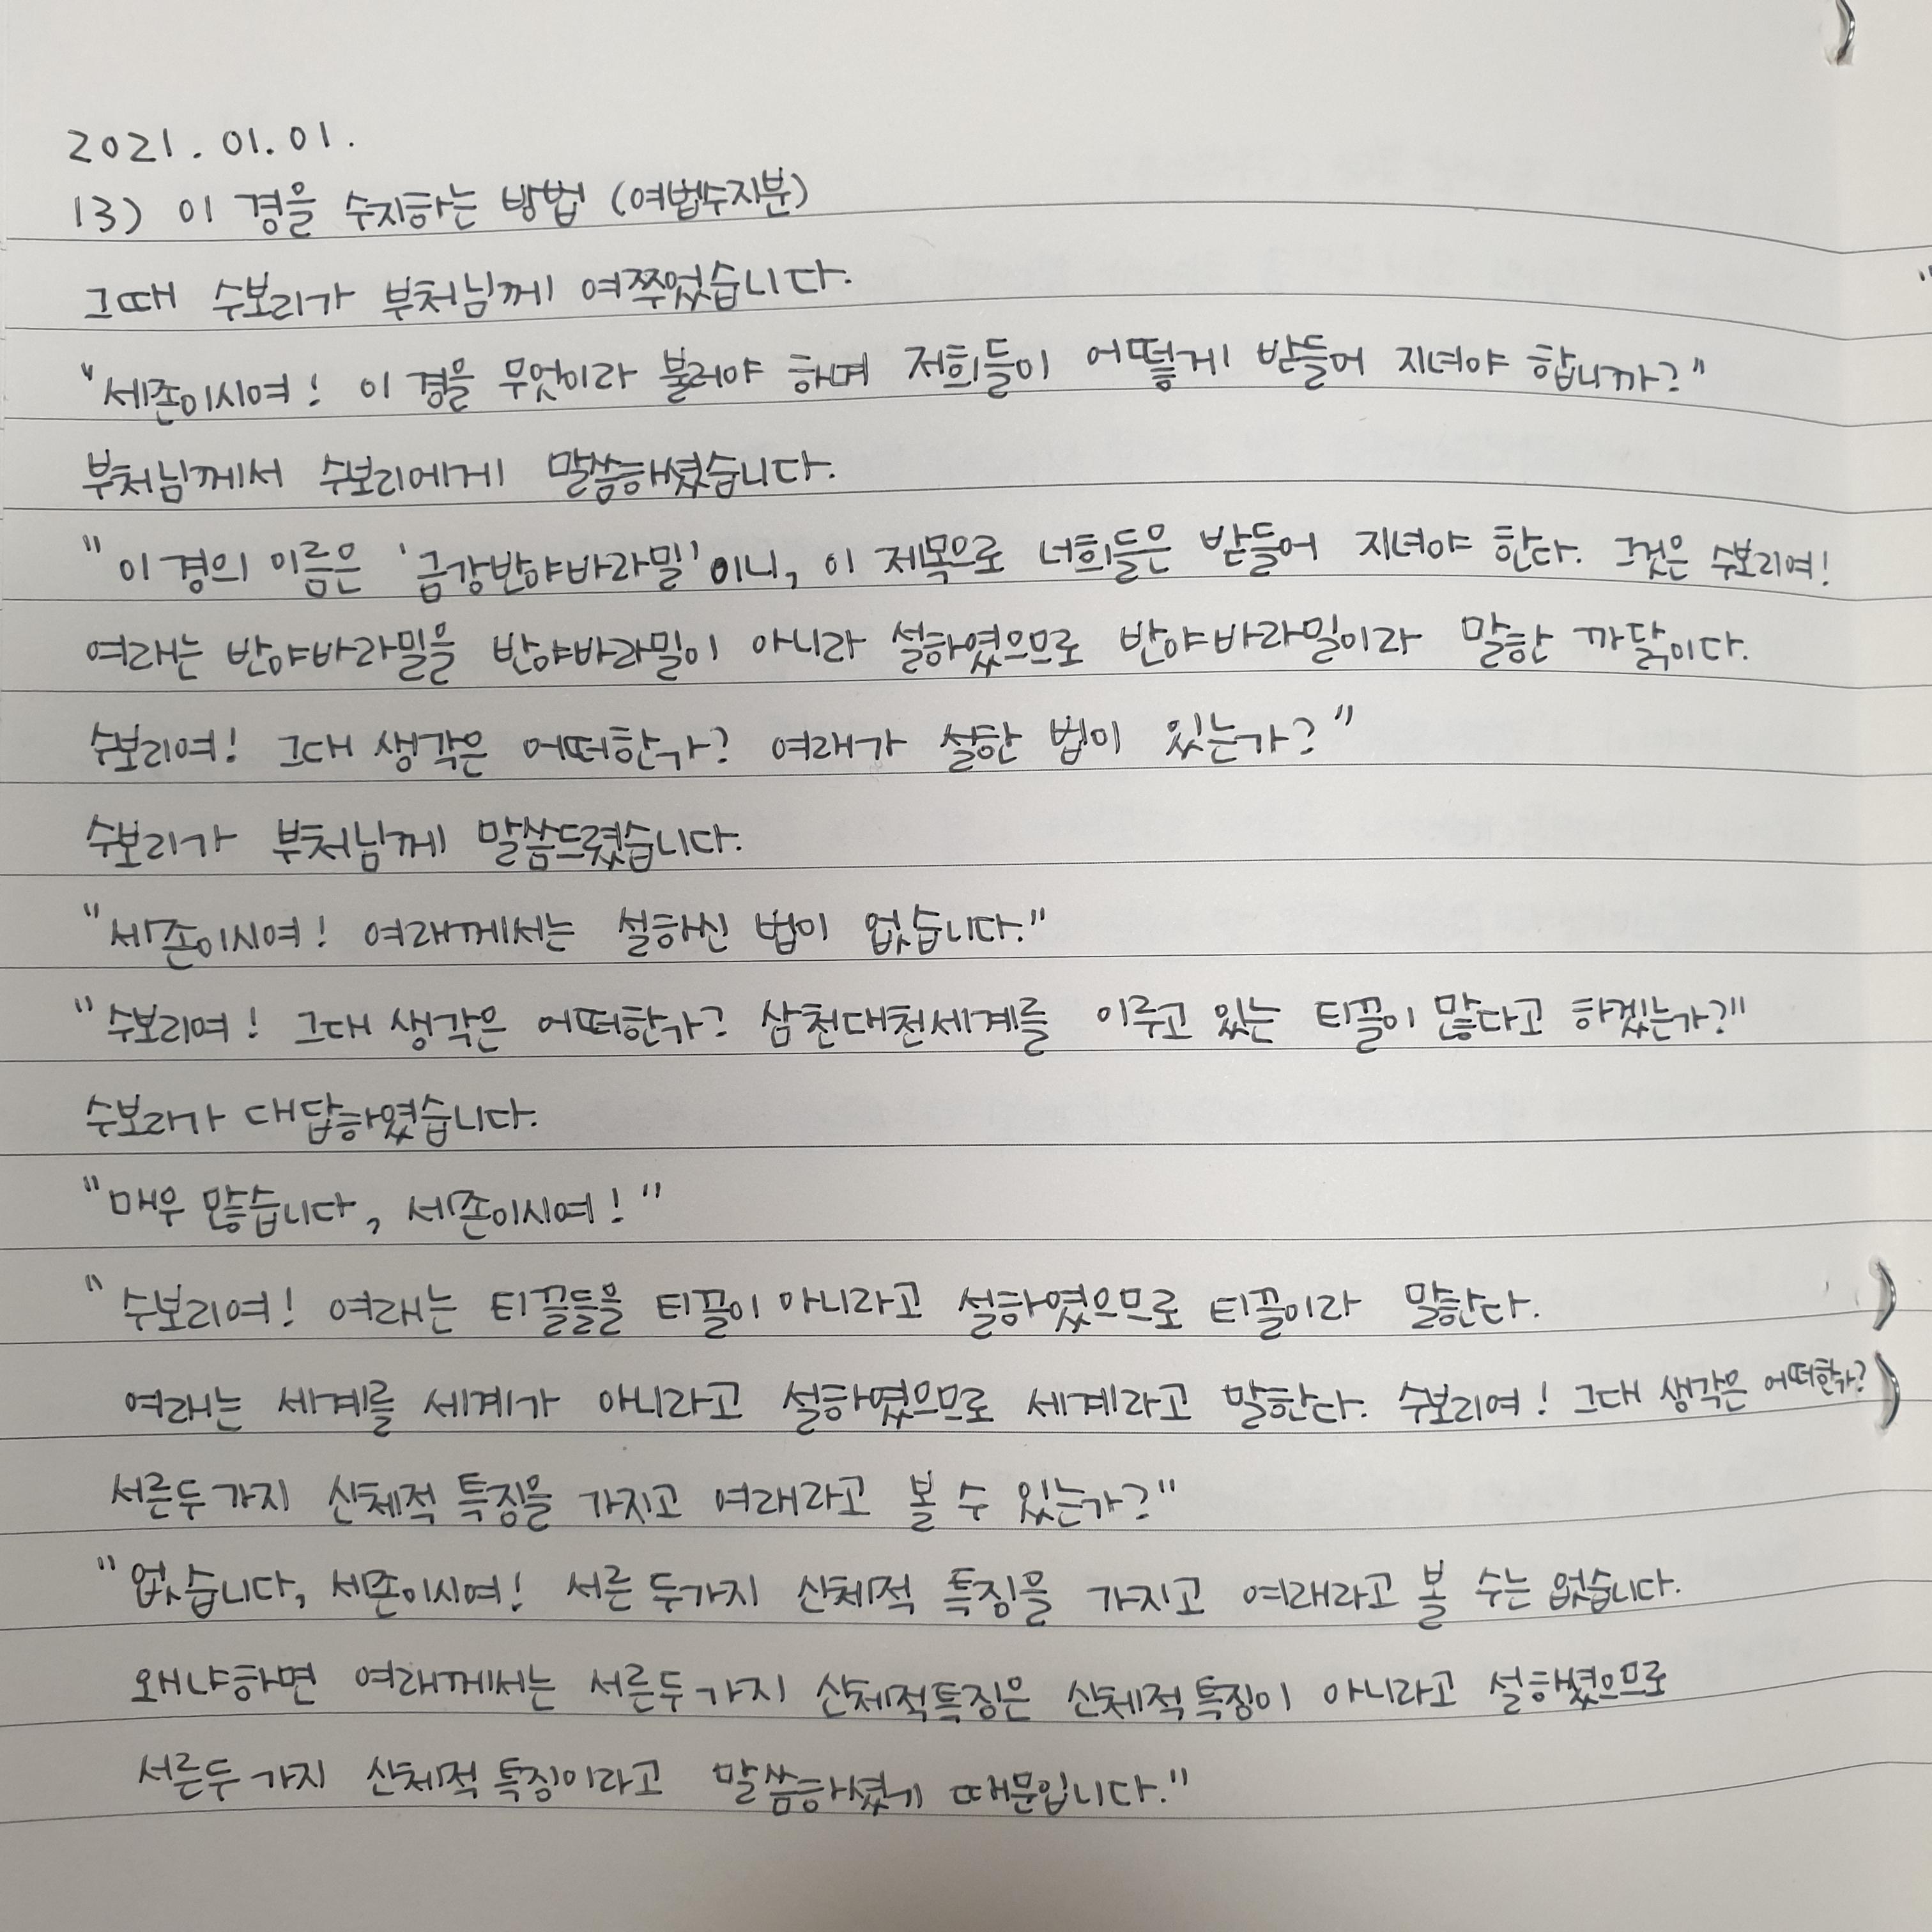 2021. 01. 01.
13) 이 경을 수지하는 방법 (여법수지분)
그때 수보리가 부처님께 여쭈었습니다.
"세존이시여! 이 경을 무엇이라 불러야 하며 저희들이 어떻게 받들어 지녀야 합니까?"
부처님께서 수보리에게 말씀하셨습니다.
"이 경의 이름은 '금강반야바라밀'이니, 이 제목으로 너희들은 받들어 지녀야 한다. 그것은 수보리여!
여래는 반야바라밀을 반야바라밀이 아니라 설하였으므로 반야바라밀이라 말한 까닭이다.
수보리여! 그대 생각은 어떠한가? 여래가 설한 법이 있는가?"
수보리가 부처님께 말씀드렸습니다.
"세존이시여! 여래께서는 설하신 법이 없습니다."
"수보리여! 그대 생각은 어떠한가? 삼천대천세계를 이루고 있는 티끌이 많다고 하겠는가?"
수보리가 대답하였습니다.
"매우 많습니다, 세존이시여!"
"수보리여! 여래는 티끌들을 티끌이 아니라고 설하였으므로 티끌이라 말한다.
여래는 세계를 세계가 아니라고 설하였으므로 세계라고 말한다. 수보리여! 그대 생각은 어떠한가?
서른두 가지 신체적 특징을 가지고 여래라고 볼 수 있는가?"
"없습니다, 세존이시여! 서른 두가지 신체적 특징을 가지고 여래라고 볼 수는 없습니다.
왜냐하면 여래께서는 서른두 가지 신체적특징은 신체적 특징이 아니라고 설하셨으므로
서른두 가지 신체적 특징이라고 말씀하셨기 때문입니다."